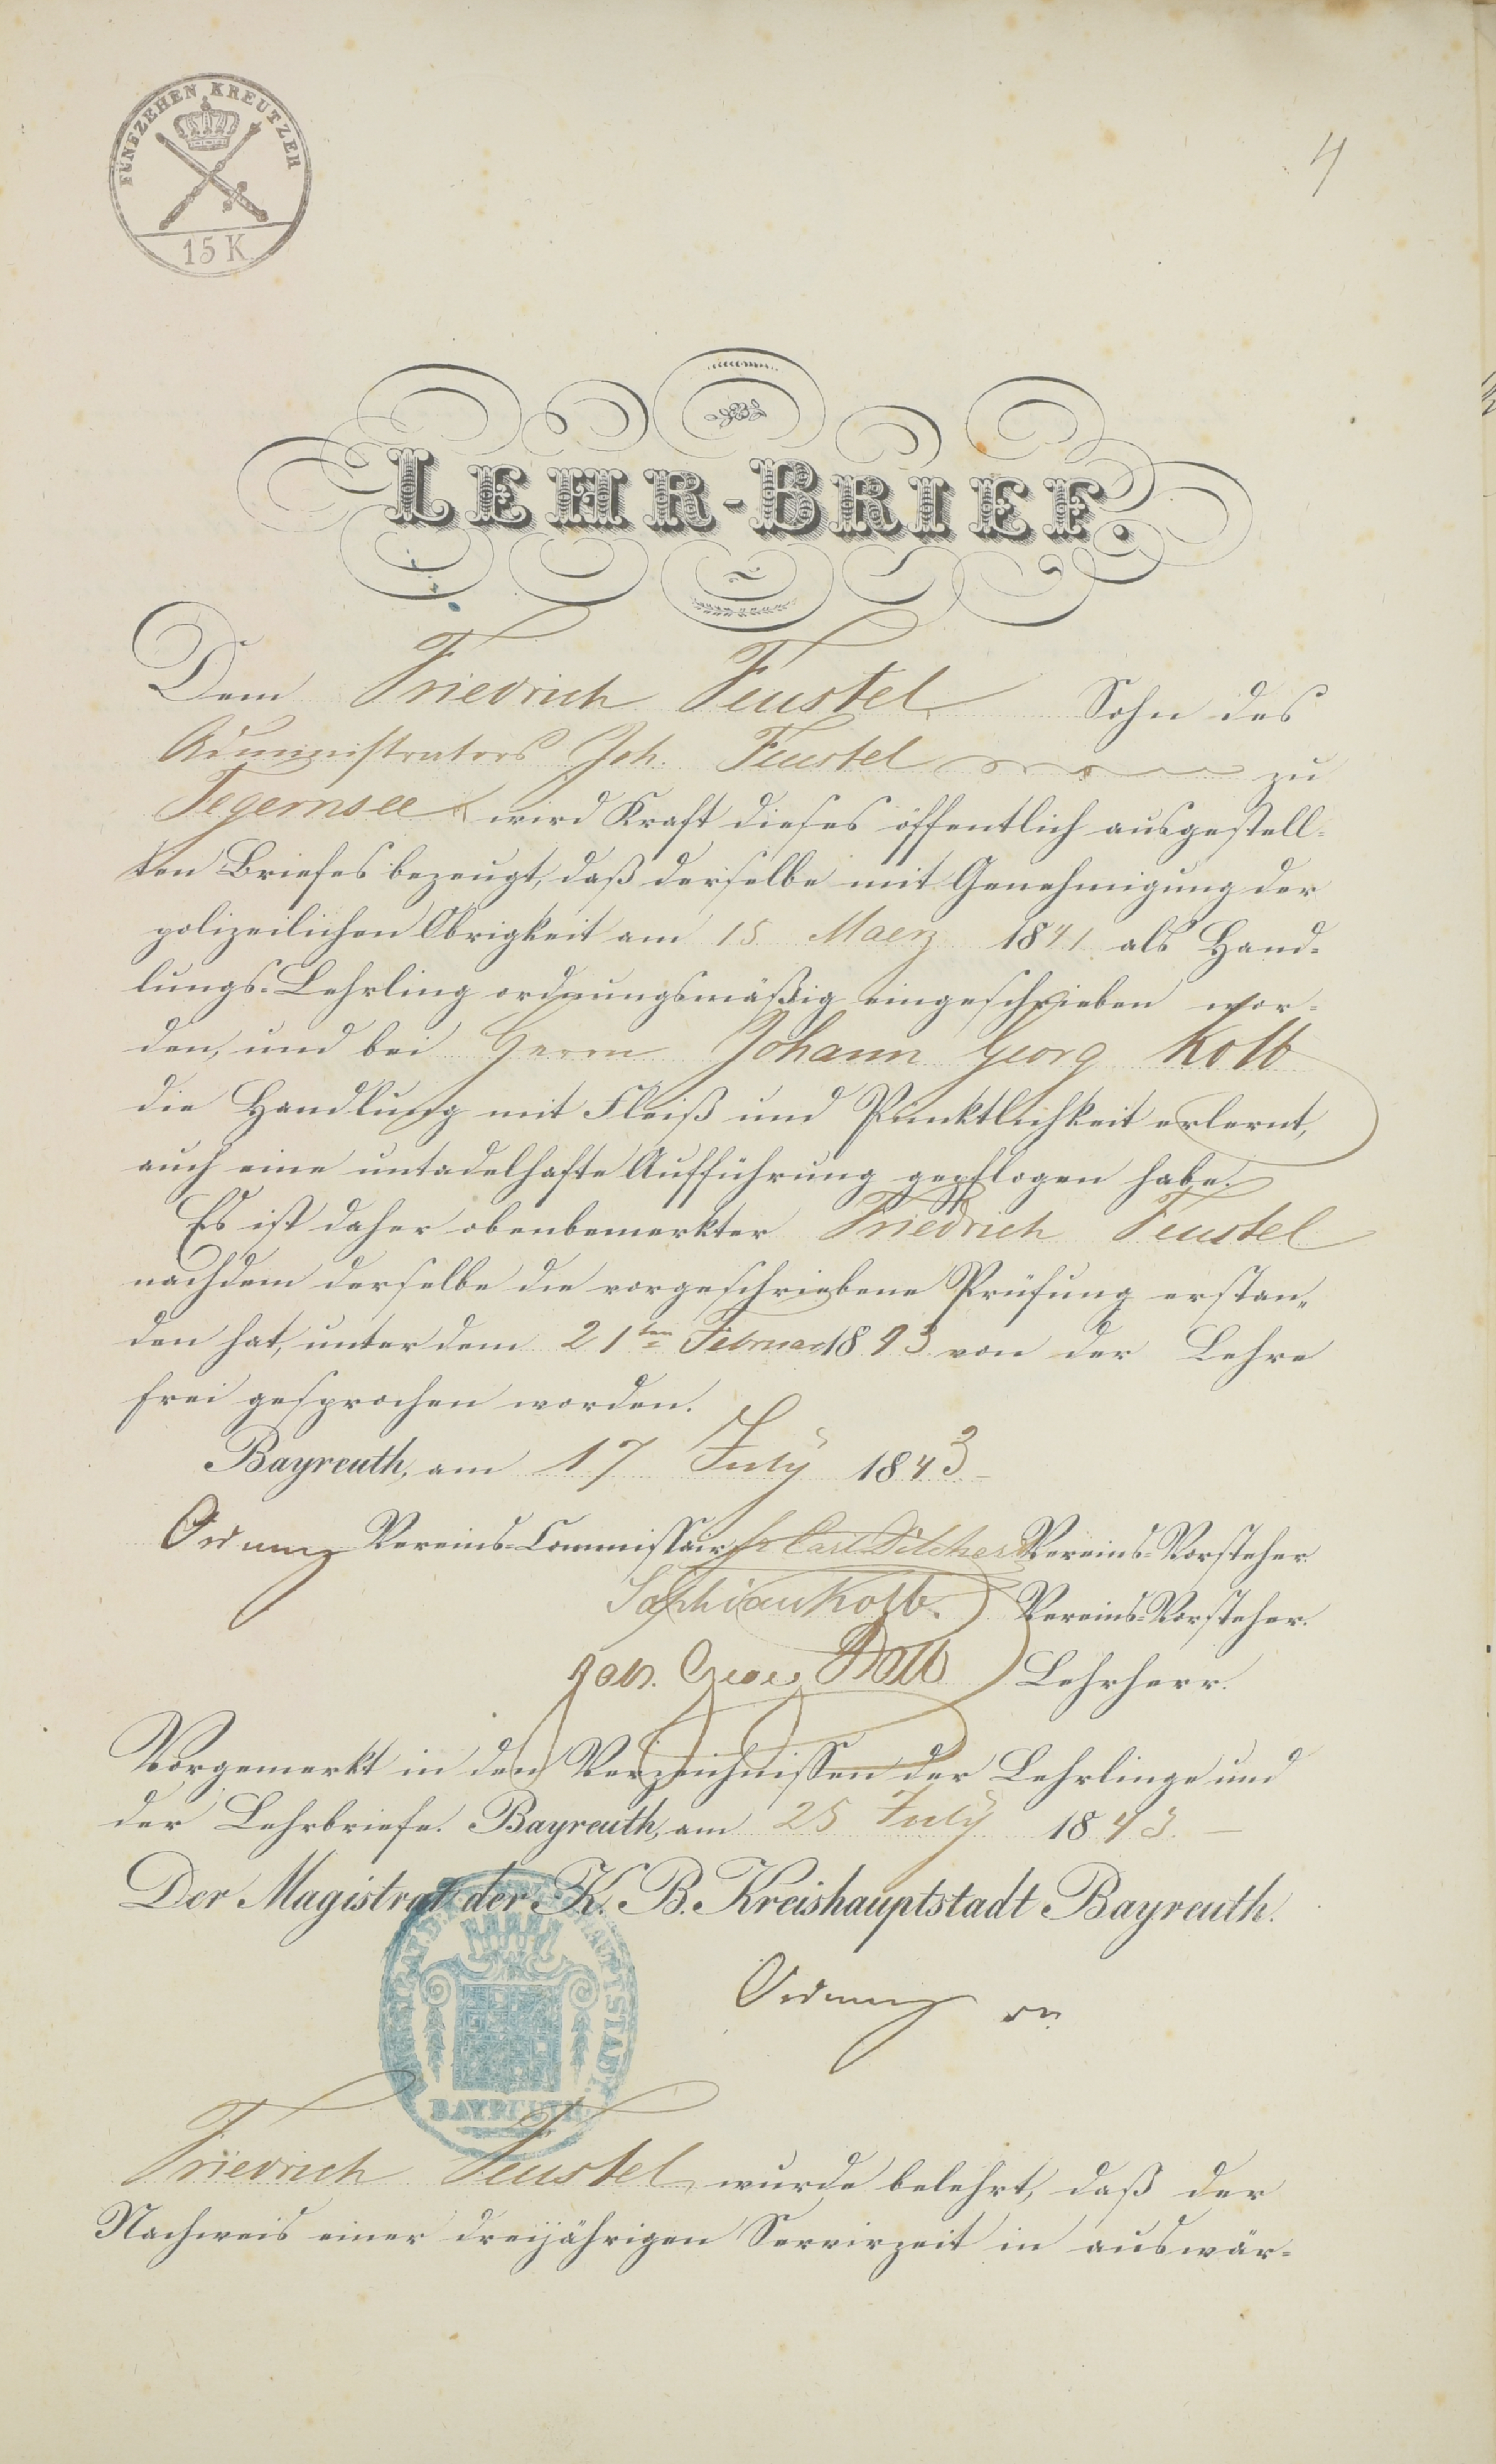 FÜNFZEHEN KREUTZER
15 K
4
LEHR-BRIEF.
Dem Friedrich Feustel Sohn des
Administrators Joh. Feustel zu
Tegernsee wird Kraft dieses öffentlich ausgestell-
ten Briefes bezeugt, daß derselbe mit Genehmigung der
polizeilichen Obrigkeit am 15 Maerz 1841 als Hand-
lungs-Lehrling ordnungsmäßig eingeschrieben wor-
den, und bei Herrn Johann Georg Kolb
die Handlung mit Fleiß und Pünktlichkeit erlernt,
auch eine untadelhafte Aufführung gepflogen habe.
Es ist daher obenbemerkter Friedrich Feustel
nachdem derselbe die vorgeschriebene Prüfung erstan-
den hat, unter dem 21ten Februar 1843 von der Lehre
frei gesprochen worden.
Bayreuth, am 17 July 1843
Vereins-Commissair Carl Vereins-Vorsteher.
Kolb. Vereins-Vorsteher.
Joh. Georg Kolb Lehrherr.
Vorgemerkt in den Verzeichnissen der Lehrlinge und
der Lehrbriefe. Bayreuth, am 25 July 1843.
Der Magistrat der K. B. Kreishauptstadt Bayreuth.
BAYREUTH
Friedrich Feustel wurde belehrt, daß der
Nachweis einer dreijährigen Servirzeit in auswär-